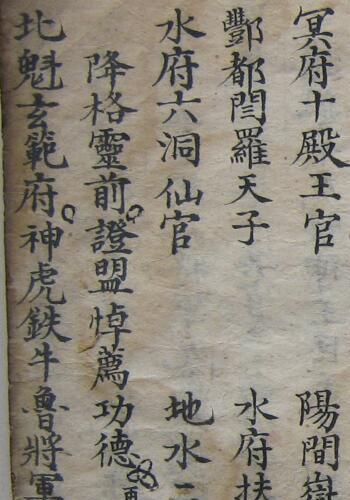 冥府十殿王官 陽間嶽
酆都閆羅天子 水府扶
水府六洞仙官 地水二
降格靈前證盟悼薦功德
北魁玄範府神虎鉄牛魯將軍